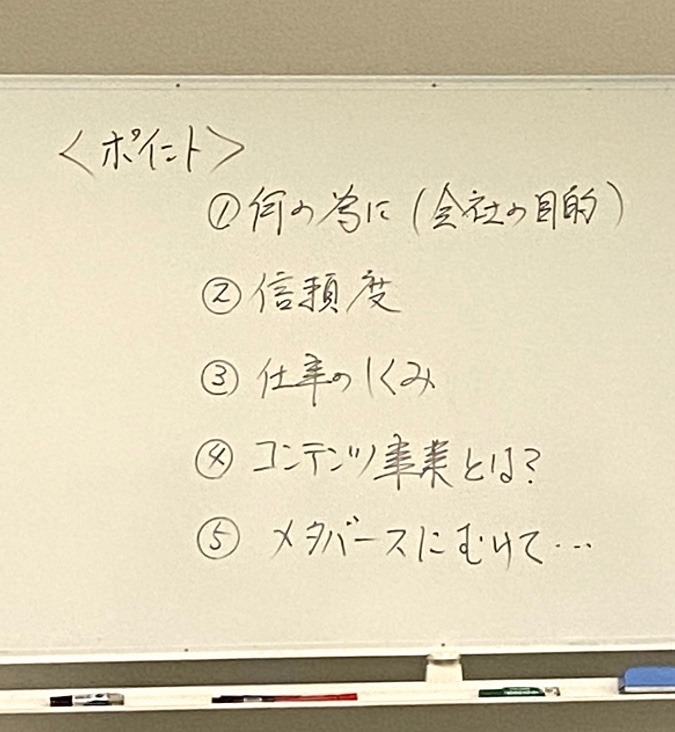 <ポイント>
①何の為に(会社の目的)
②信頼度
③仕事のしくみ
④コンテンツ事業とは?
⑤メタバースにむけて…